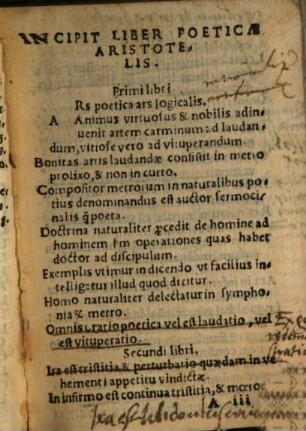 INCIPIT LIBER POETICÆ
ARISTOTE-
LIS.
Primi libri
Rs poetica ars logicalis.
A Animus virtuosus & nobilis adin-
uenit artem carminum ad laudan-
dum, vitiose vero ad vituperandum
Bonitas artis laudandæ consistit in metro
prolixo, & non in curto.
Compositor metrorum in naturalibus po-
tius denominandus est auctor sermoci-
nalis q̃ poeta.
Doctrina naturaliter ꝓcedit de homine ad
hominem ẜm operationes quas habet
doctor ad discipulum.
Exemplis vtimur in dicendo vt facilius in-
telligatur illud quod dicitur.
Homo naturaliter delectatur in sympho-
nia & metro.
Omnis oratio poetica vel est laudatio, vel
est vituperatio.
Secundi libri.
Ira est tristitia & perturbatio quædam in ve
hementi appetitu vindictæ.
In infirmo est continua tristitia, & mœror
A iii
Ira est